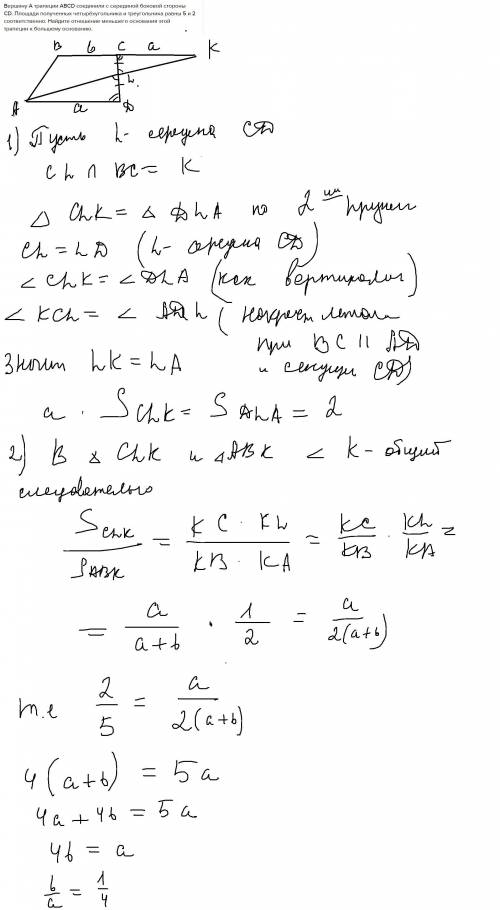 Вершину А трапеции ABCD соединили с серединой боковой стороны
CD. Площади полученных четырёхугольника и треугольника равны 5 и 2
соответственно. Найдите отношение меньшего основания этой
трапеции к большему основанию.
B b C a K
L
A a D
1) Пусть L - середина CD
CL ∩ BC = K
△ CLK = △ DLA по 2им
CL = LD (L - середина CD)
∠ CLK = ∠ DLA (как вертикальн)
∠ KCL = ∠ ADL (накрест лежащ
при BC || AD
и секущей CD)
Значит LK = LA
а · S CLK = S ALA = 2
2) В △ CLK и △ ABK ∠ K - общий
следовательно
S CLK / S ABK = KC · KL / KB · KA = KC / KB · KL / KA =
= a / a+b · 1 / 2 = a / 2(a+b)
т.е 2 / 5 = a / 2(a+b)
4(a+b) = 5a
4a + 4b = 5a
4b = a
b / a = 1 / 4